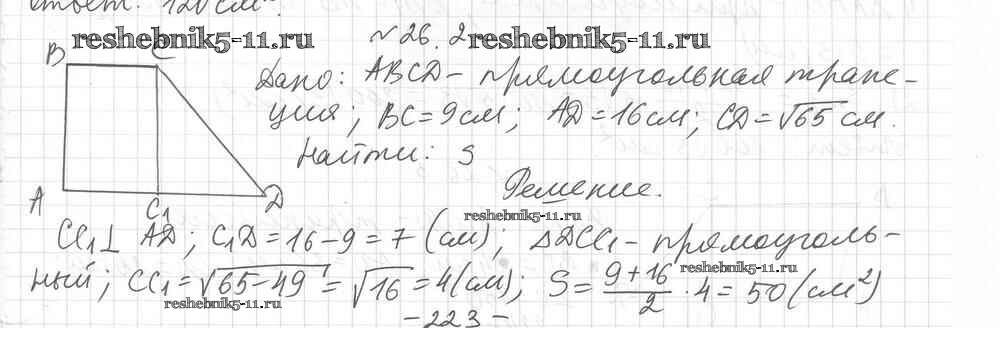 ответ: 120 см².
reshebnik5-11.ru
№26.2 reshebnik5-11.ru
B C
Дано: ABCD – прямоугольная трапе-
ция; BC = 9 см; AD = 16 см; CD = √65 см.
Найти: S
A C₁ D
Решение.
reshebnik5-11.ru
CC₁ ⊥ AD; C₁D = 16 – 9 = 7 (см); ΔDCC₁ – прямоуголь-
ный; CC₁ = √65 – 49 = √16 = 4 (см); S = 9 + 16 / 2 · 4 = 50 (см²)
reshebnik5-11.ru
reshebnik5-11.ru
– 223 –